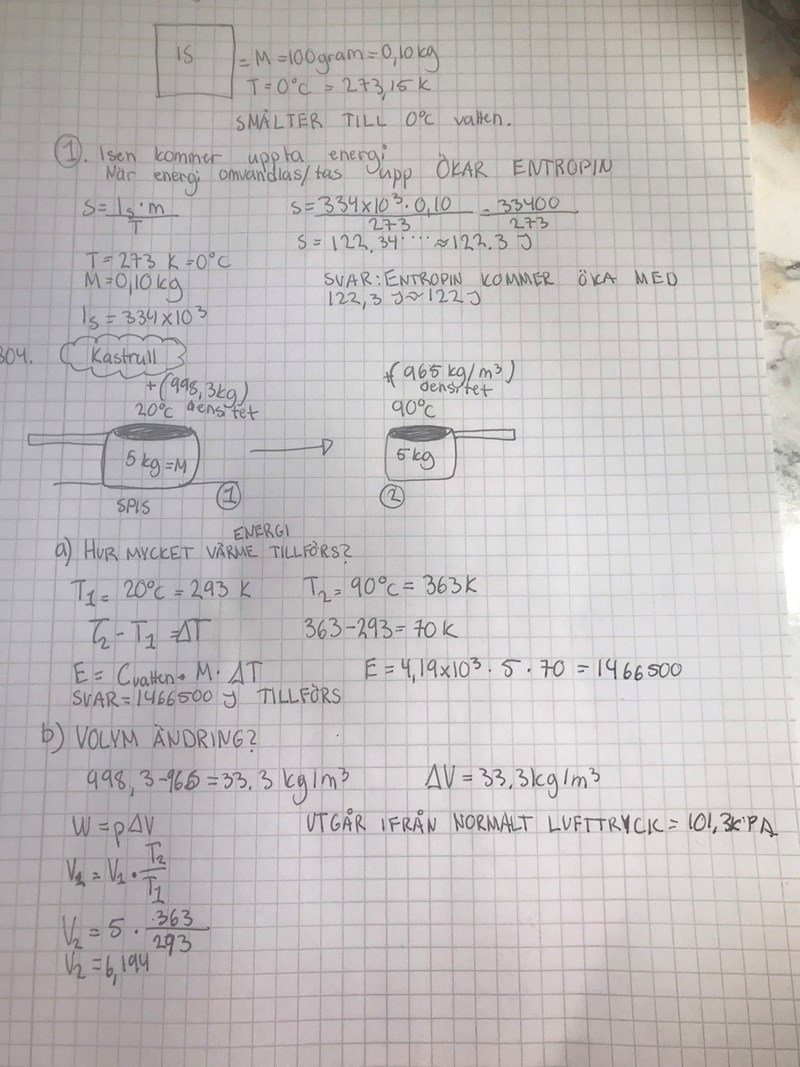 IS
= M = 100gram = 0,10 kg
T = 0°C = 273,15 K
SMÄLTER TILL 0°C vatten.
①. Isen kommer uppta energi
När energi omvandlas/tas upp ÖKAR ENTROPIN
S = ls·m / T
S = 334x10³·0,10 / 273 = 33400 / 273
S = 122,34···· ≈ 122.3 J
T = 273 K = 0°C
M = 0,10 kg
ls = 334x10³
SVAR: ENTROPIN KOMMER ÖKA MED
122,3 J ≈ 122 J
304. Kastrull
+(998,3kg)
20°C densitet
+(965 kg/m³)
densitet
90°C
5 kg = M
5 kg
SPIS ① ②
ENERGI
a) HUR MYCKET VÄRME TILLFÖRS?
T1 = 20°C = 293 K T2 = 90°C = 363K
T2 - T1 = ΔT 363-293 = 70 K
E = Cvatten · M · ΔT E = 4,19x10³ · 5 · 70 = 1466500
SVAR = 1466500 J TILLFÖRS
b) VOLYM ÄNDRING?
998,3-965 = 33.3 kg/m³ ΔV = 33,3kg/m³
W = pΔV UTGÅR IFRÅN NORMALT LUFTTRYCK = 101,3k·PA
V2 = V1 · T2 / T1
V2 = 5 · 363 / 293
V2 = 6,194